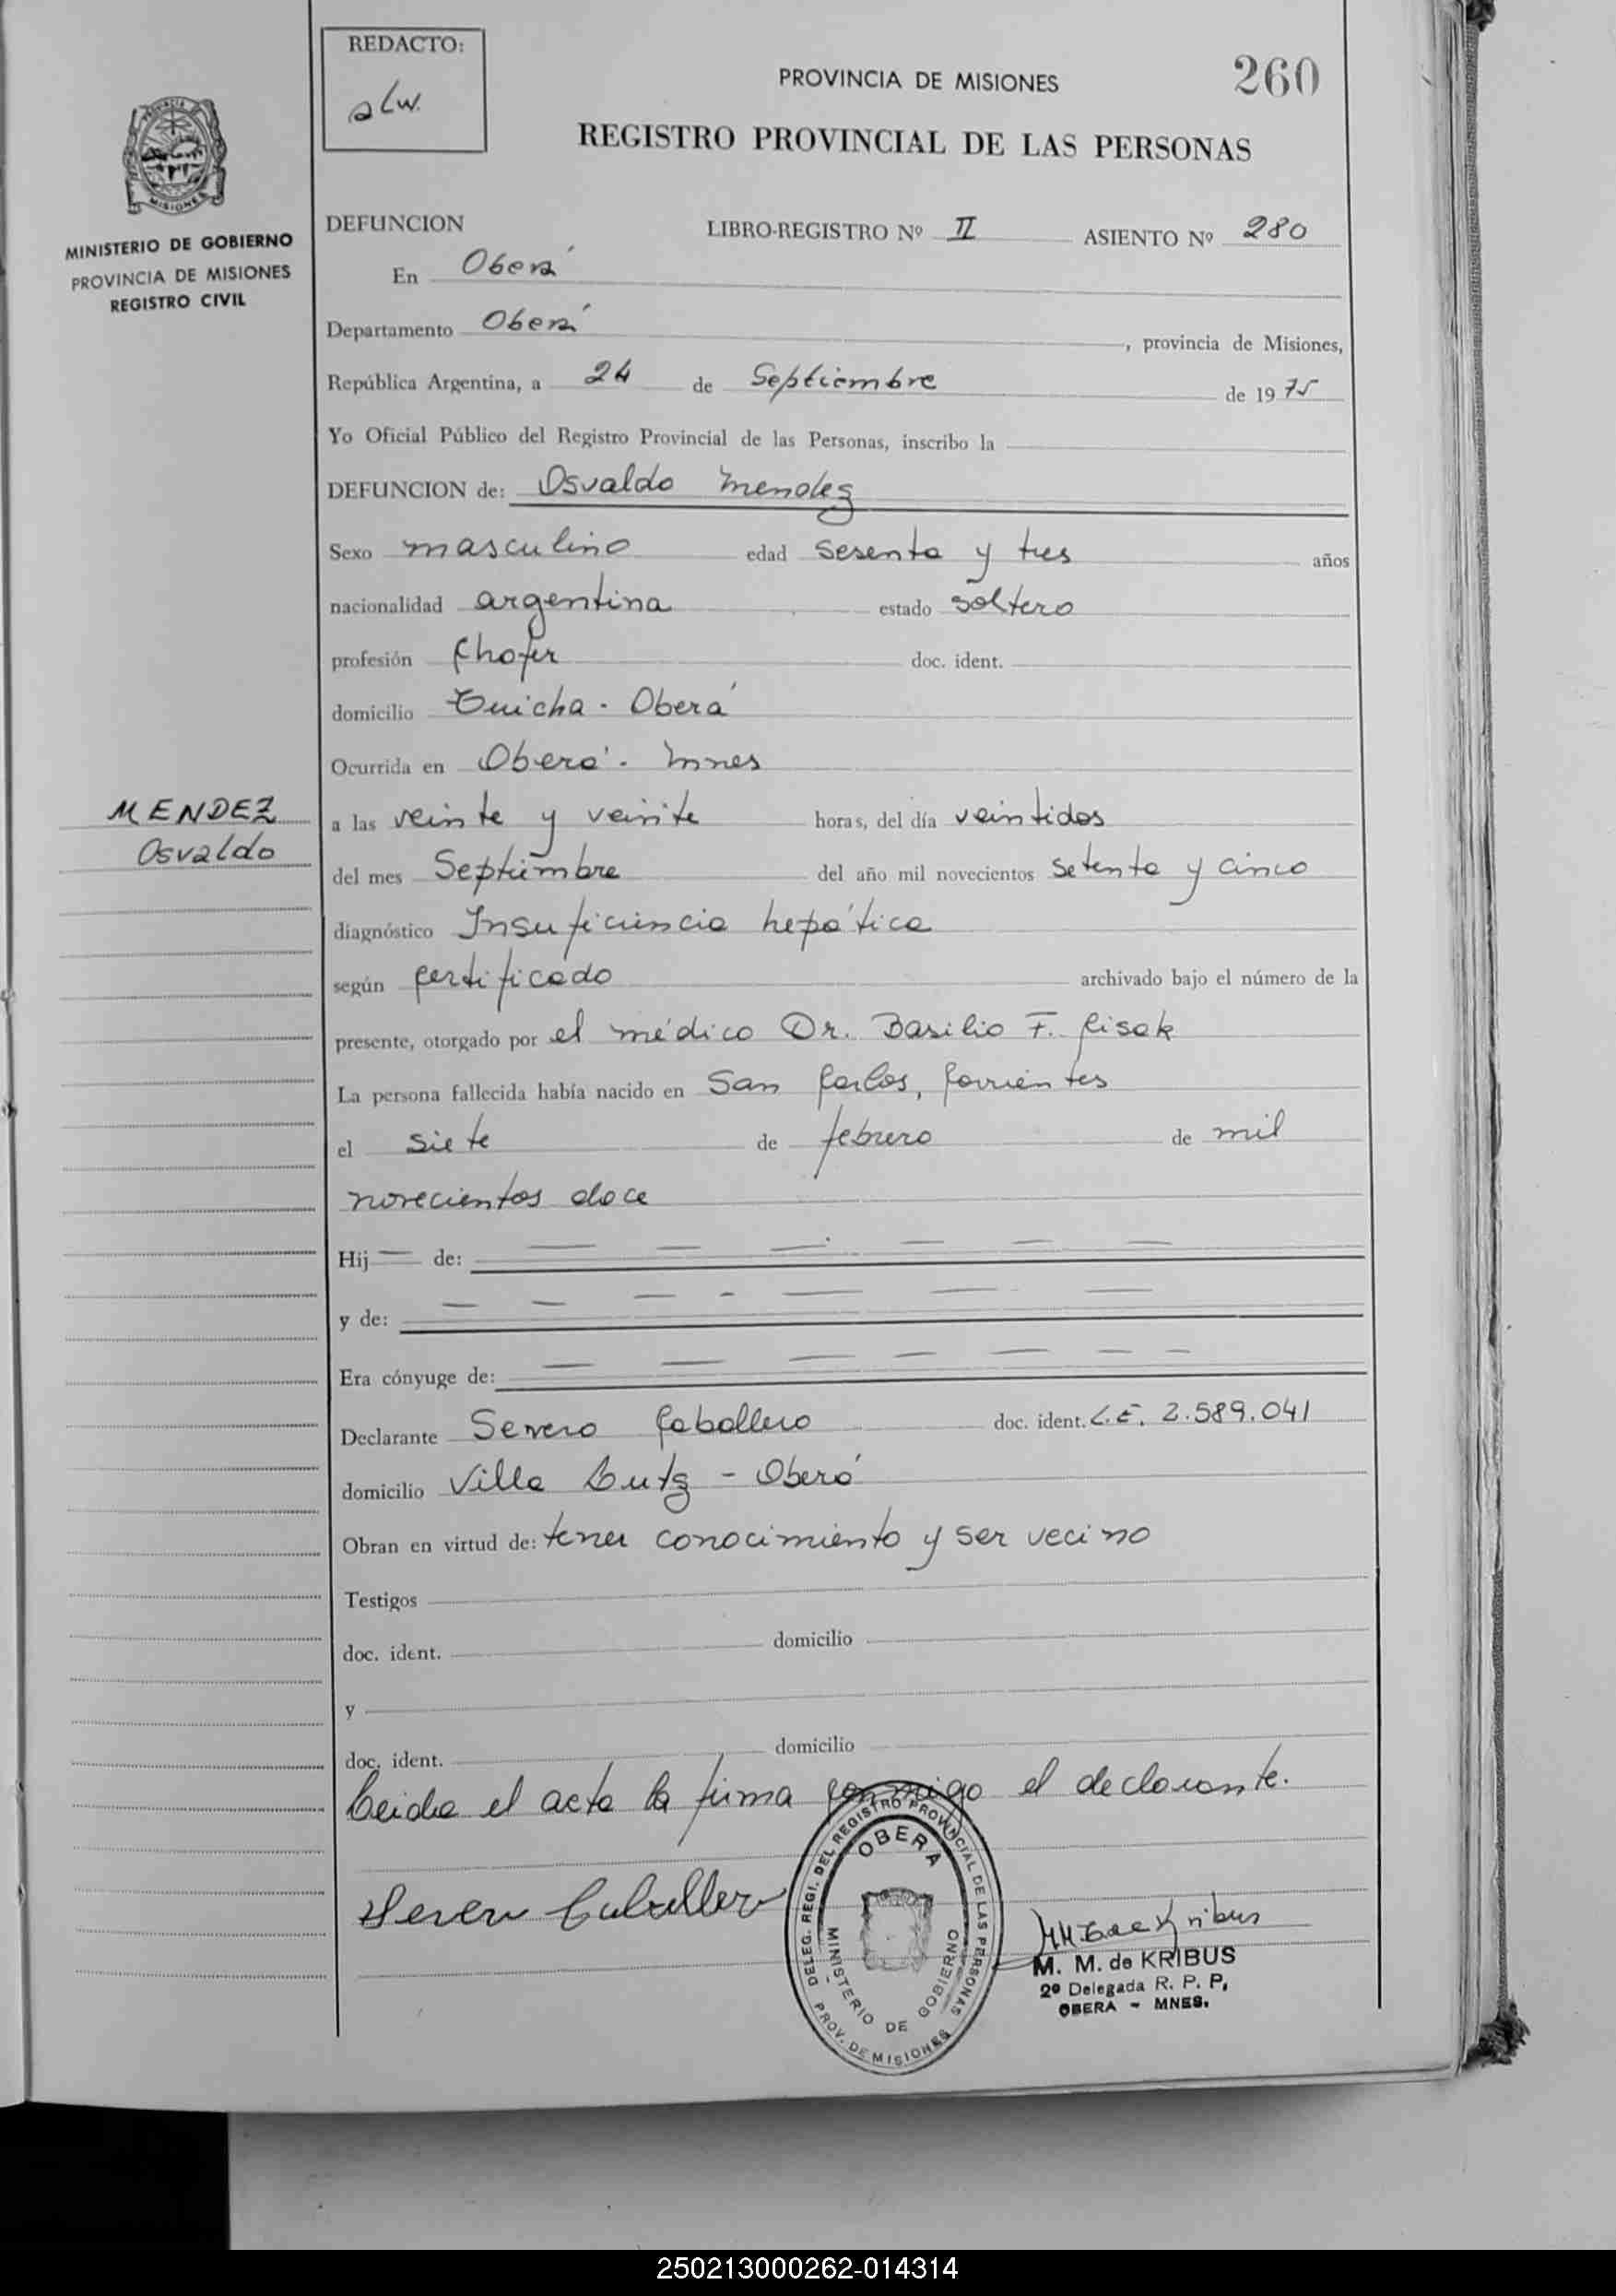 REDACTO:
alw.
PROVINCIA DE MISIONES
260
REGISTRO PROVINCIAL DE LAS PERSONAS
MISIONES
MINISTERIO DE GOBIERNO
PROVINCIA DE MISIONES
REGISTRO CIVIL
DEFUNCION LIBRO-REGISTRO Nº II ASIENTO Nº 280
En Oberá
Departamento Oberá, provincia de Misiones,
República Argentina, a 24 de Septiembre de 1975
Yo Oficial Público del Registro Provincial de las Personas, inscribo la
DEFUNCION de: Osvaldo Mendez
Sexo masculino edad sesenta y tres años
nacionalidad argentina estado soltero
profesión Chofer doc. ident.
domicilio Guicha - Oberá
Ocurrida en Oberá - Mnes
MENDEZ
Osvaldo
a las veinte y veinte horas, del día veintidos
del mes Septiembre del año mil novecientos setenta y cinco
diagnóstico Insuficiencia hepática
según Certificado archivado bajo el número de la
presente, otorgado por el médico Dr. Basilio F. Cisok
La persona fallecida había nacido en San Carlos, Corrientes
el siete de febrero de mil
novecientos doce
Hij— de: — — — — — —
y de: — — — - — — —
Era cónyuge de: — — — — — — —
Declarante Severo Caballero doc. ident. L.E. 2.589.041
domicilio Villa Lutz - Oberá
Obran en virtud de: tener conocimiento y ser vecino
Testigos
doc. ident. domicilio
y
doc. ident. domicilio
Leida el acta la firma conmigo el declarante.
Severo Caballero
DELEG. REGI. DEL REGISTRO PROVINCIAL DE LAS PERSONAS
OBERA
MINISTERIO DE GOBIERNO
PROV. DE MISIONES
M. M. de KRIBUS
2º Delegada R. P. P.
OBERA - MNES.
250213000262-014314